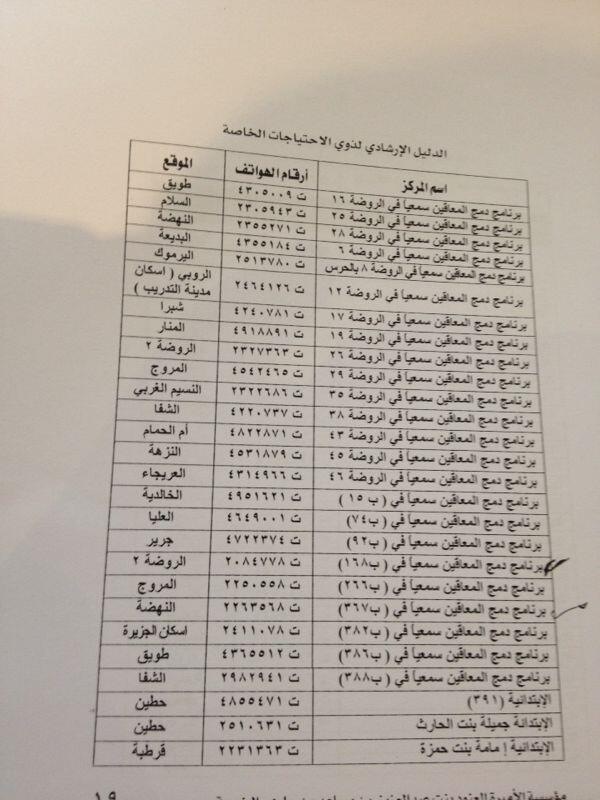 الدليل الإرشادي لذوي الاحتياجات الخاصة
اسم المركز أرقام الهواتف الموقع
برنامج دمج المعاقين سمعياً في الروضة ١٦ ت ٤٣٠٥٠٠٩ طويق
برنامج دمج المعاقين سمعياً في الروضة ٢٥ ت ٢٣٠٥٩٤٣ السلام
برنامج دمج المعاقين سمعياً في الروضة ٢٨ ت ٢٣٥٥٢٧١ النهضة
برنامج دمج المعاقين سمعياً في الروضة ٦ ت ٤٣٥٥١٨٤ البديعة
برنامج دمج المعاقين سمعياً في الروضة ٨ بالحرس ت ٢٥١٣٧٨٠ اليرموك
برنامج دمج المعاقين سمعياً في الروضة ١٢ ت ٢٤٦٤١٢٦ الروبي ( اسكان
مدينة التدريب )
برنامج دمج المعاقين سمعياً في الروضة ١٧ ت ٤٢٤٠٧٨١ شبرا
برنامج دمج المعاقين سمعياً في الروضة ١٩ ت ٤٩١٨٨٩١ المنار
برنامج دمج المعاقين سمعياً في الروضة ٢٦ ت ٢٣٢٧٣٦٣ الروضة ٢
برنامج دمج المعاقين سمعياً في الروضة ٢٩ ت ٤٥٤٢٤٦٥ المروج
برنامج دمج المعاقين سمعياً في الروضة ٣٥ ت ٢٣٢٢٦٨٦ النسيم الغربي
برنامج دمج المعاقين سمعياً في الروضة ٣٨ ت ٤٢٢٠٧٣٧ الشفا
برنامج دمج المعاقين سمعياً في الروضة ٤٣ ت ٤٨٢٢٨٧١ أم الحمام
برنامج دمج المعاقين سمعياً في الروضة ٤٥ ت ٤٥٣١٨٧٩ النزهة
برنامج دمج المعاقين سمعياً في الروضة ٤٦ ت ٤٣١٤٩٦٦ العريجاء
برنامج دمج المعاقين سمعياً في ( ب ١٥ ) ت ٤٩٥١٦٢١ الخالدية
برنامج دمج المعاقين سمعياً في ( ب٧٤) ت ٤٦٤٩٠٠١ العليا
برنامج دمج المعاقين سمعياً في ( ب٩٢) ت ٤٧٢٢٣٧٤ جرير
برنامج دمج المعاقين سمعياً في ( ب١٦٨) ت ٢٠٨٤٧٧٨ الروضة ٢
برنامج دمج المعاقين سمعياً في ( ب٢٦٦) ت ٢٢٥٠٥٥٨ المروج
برنامج دمج المعاقين سمعياً في ( ب٣٦٧) ت ٢٢٦٣٥٦٨ النهضة
برنامج دمج المعاقين سمعياً في ( ب٣٨٢) ت ٢٤١١٠٧٨ اسكان الجزيرة
برنامج دمج المعاقين سمعياً في ( ب٣٨٦) ت ٤٣٦٥٥١٢ طويق
برنامج دمج المعاقين سمعياً في ( ب٣٨٨) ت ٢٩٨٢٩٤١ الشفا
الإبتدائية (٣٩١) ت ٤٨٥٥٤٧١ حطين
الإبتدائة جميلة بنت الحارث ت ٢٥١٠٦٣١ حطين
الإبتدائية إ مامة بنت حمزة ت ٢٢٣١٣٦٣ قرطبة
مؤسسة الأميرة العنود بنت ١٩